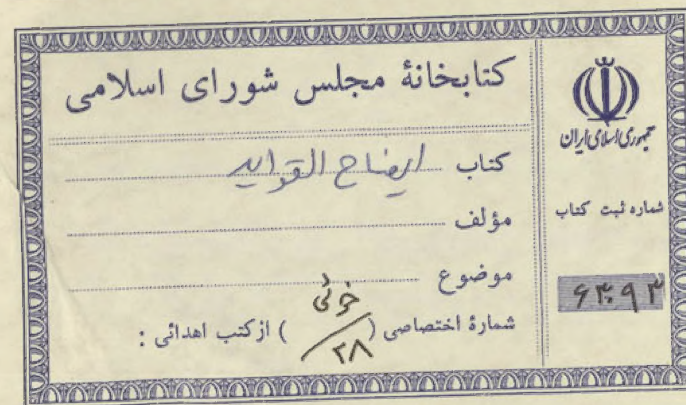 کتابخانهٔ مجلس شورای اسلامی
کتاب ایضاح القواید
مؤلف
موضوع
شمارهٔ اختصاصی (خوئی / ۲۸) از کتب اهدائی :
جمهوری اسلامی ایران
شماره ثبت کتاب
۶۳۰۹۳